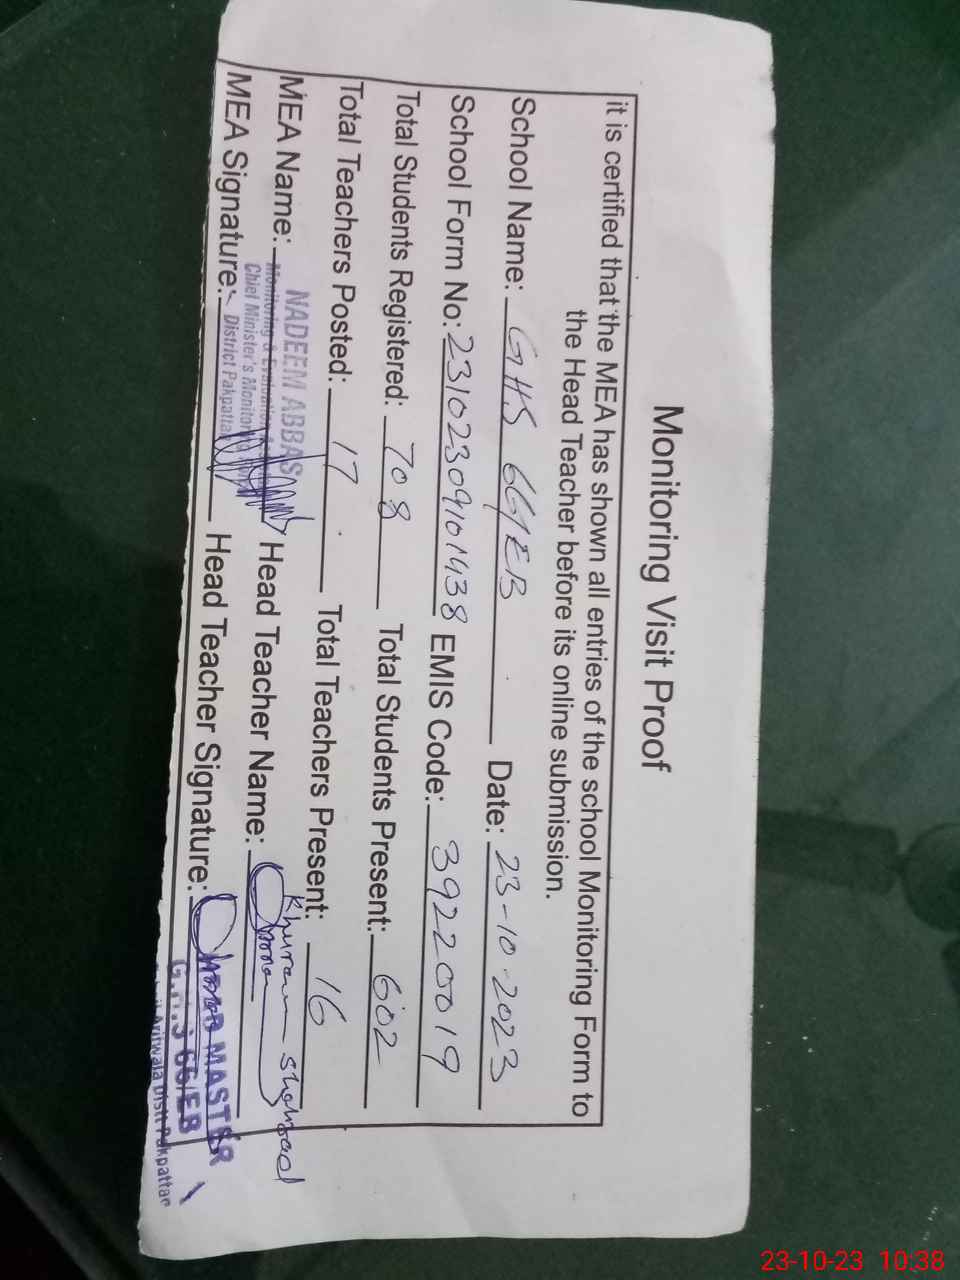 Monitoring Visit Proof
it is certified that the MEA has shown all entries of the school Monitoring Form to
the Head Teacher before its online submission.
School Name: GHS 66/EB Date: 23-10-2023
School Form No: 23102309101438 EMIS Code: 39220019
Total Students Registered: 708 Total Students Present: 602
Total Teachers Posted: 17 Total Teachers Present: 16
MEA Name: NADEEM ABBAS Head Teacher Name: Khuram Shahzad
Monitoring & Evaluation
Chief Minister's Monitoring
District Pakpattan
MEA Signature: Head Teacher Signature:
MASTER
G.H.S 66/EB
Arifwala Distt Pakpattan
23-10-23 10:38